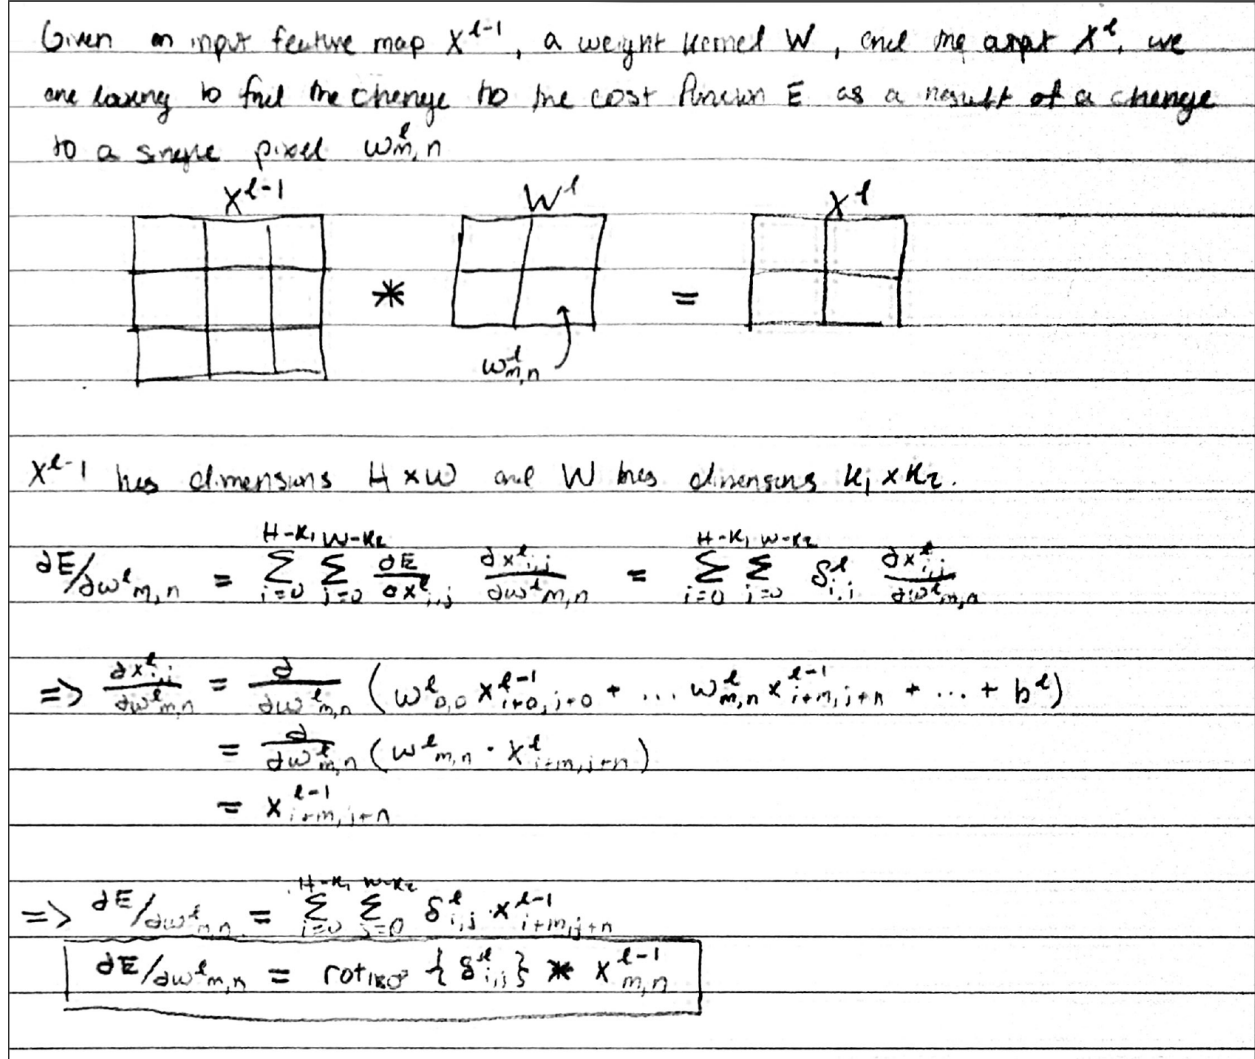 Given an input feature map X^{l-1}, a weight kernel W, and the output X^l, we
are looking to find the change to the cost function E as a result of a change
to a single pixel w^l_{m,n}
X^{l-1} W^l X^l
* =
w^l_{m,n}
X^{l-1} has dimensions H x W and W has dimensions k_1 x k_2.
∂E/∂w^l_{m,n} = Σ_{i=0}^{H-k_1} Σ_{j=0}^{W-k_2} ∂E/∂x^l_{i,j} ∂x^l_{i,j}/∂w^l_{m,n} = Σ_{i=0}^{H-k_1} Σ_{j=0}^{W-k_2} δ^l_{i,j} ∂x^l_{i,j}/∂w^l_{m,n}
=> ∂x^l_{i,j}/∂w^l_{m,n} = ∂/∂w^l_{m,n} (w^l_{0,0} x^{l-1}_{i+0,j+0} + ... w^l_{m,n} x^{l-1}_{i+m,j+n} + ... + b^l)
= ∂/∂w^l_{m,n} (w^l_{m,n} · x^l_{i+m,j+n})
= x^{l-1}_{i+m,j+n}
=> ∂E/∂w^l_{m,n} = Σ_{i=0}^{H-k_1} Σ_{j=0}^{W-k_2} δ^l_{i,j} · x^{l-1}_{i+m,j+n}
∂E/∂w^l_{m,n} = rot_{180°} {δ^l_{i,j}} * x^{l-1}_{m,n}